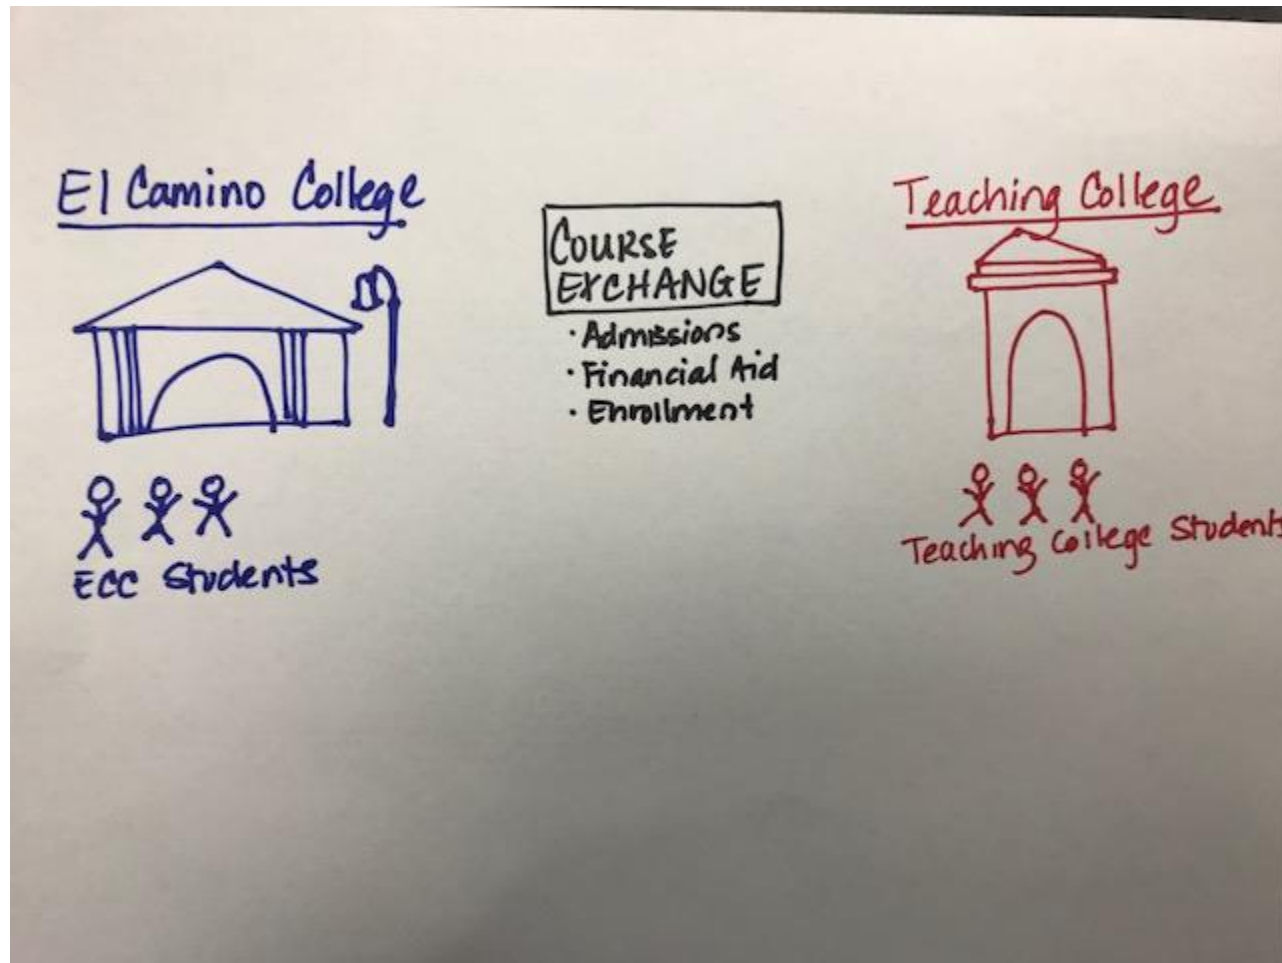 El Camino College
COURSE
EXCHANGE
· Admissions
· Financial Aid
· Enrollment
Teaching College
ECC Students
Teaching College Students